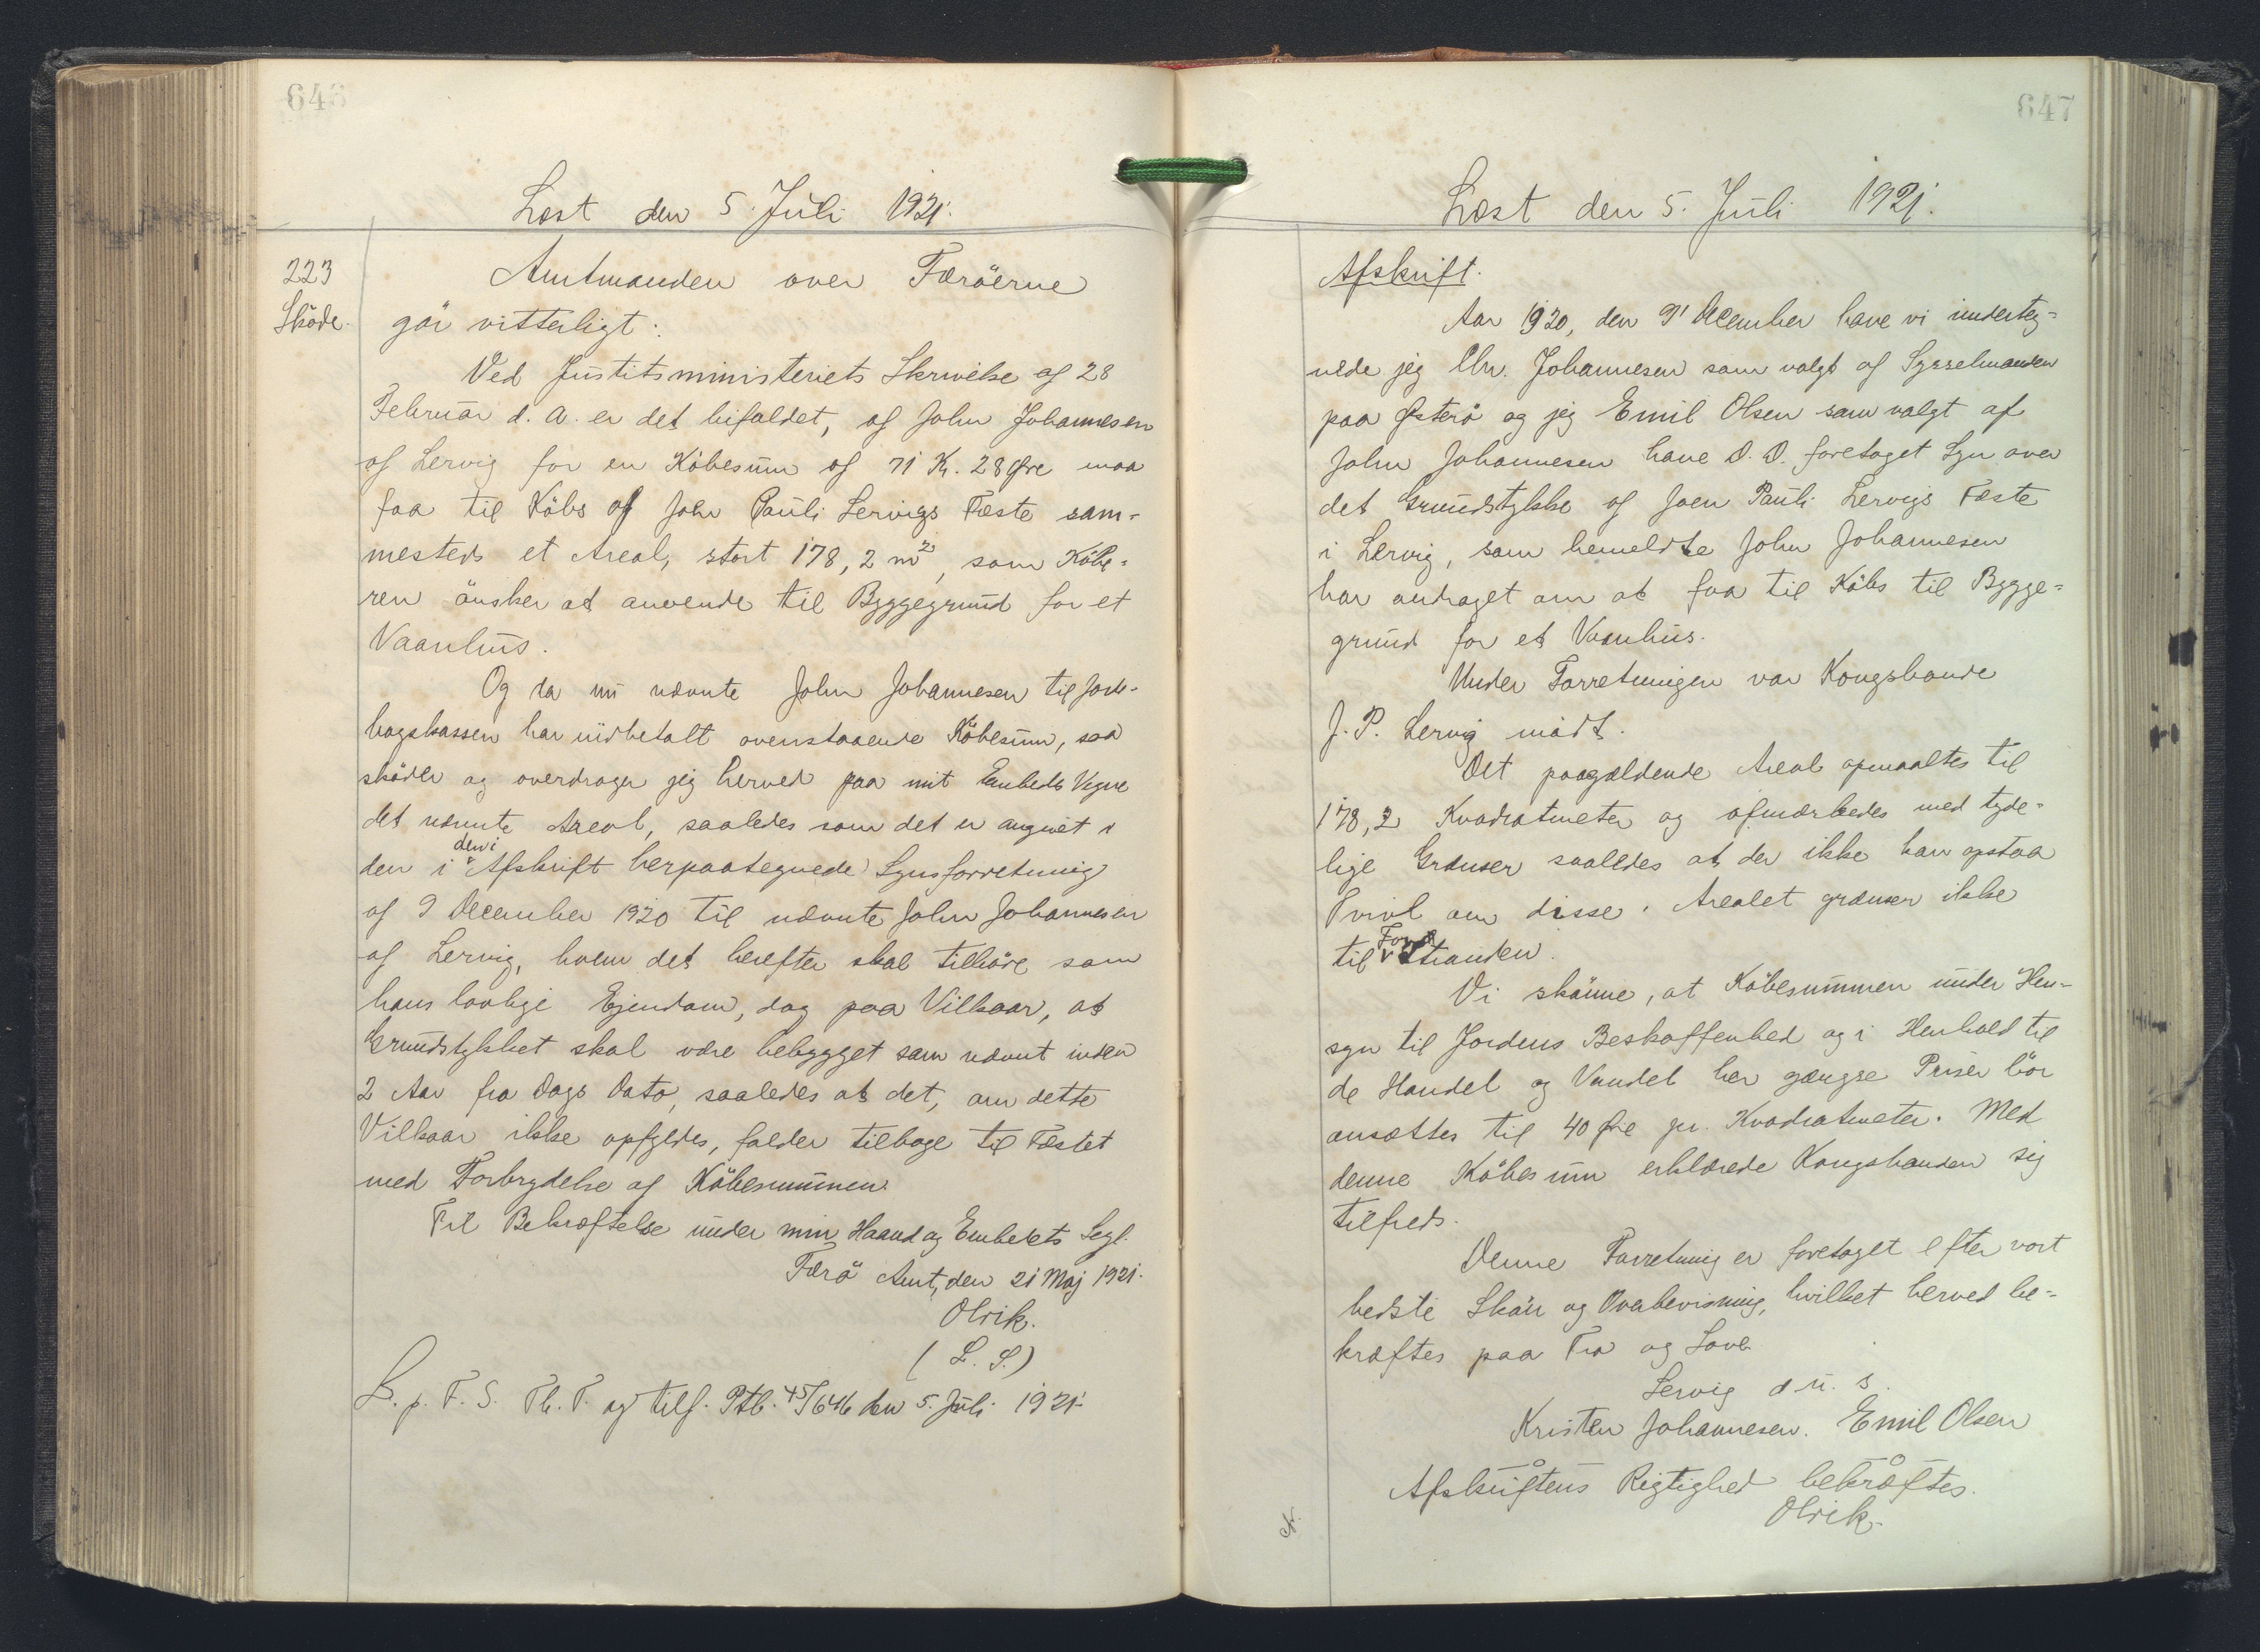 646
Læst den 5. Juli 1921.
223
Skøde.
Amtmanden over Færöerne
gör vitterligt:
Ved Justitsministeriets Skrivelse af 28
Februar d. A. er det bifaldet, af John Johannesen
af Lervig for en Köbesum af 71 Kr. 28 Øre maa
faa til Köbs af John Pauli Lervigs Fæste sam-
mesteds et Areal, stort 178,2 m², som Köbe-
ren önsker at anvende til Byggegrund for et
Vaanhus.
Og da nu nævnte John Johannesen til Jorde-
bogskassen har indbetalt ovenstaaende Köbesum, saa
sköder og overdrager jeg herved paa mit Embeds Vegne
det nævnte Areal, saaledes som det er angivet i
den i den i Afskrift herpaategnede Synsforretning
af 9 December 1920 til nævnte John Johannesen
af Lervig, hvem det herefter skal tilhöre som
hans lovlige Ejendom, dog paa Vilkaar, at
Grundstykket skal være bebygget som nævnt inden
2 Aar fra Dags Dato, saaledes at det, om dette
Vilkaar ikke opfyldes, falder tilbage til Fæstet
med Forbrydelse af Köbesummen.
Til Bekræftelse under min Haand og Embedets Segl.
Færö Amt, den 21 Maj 1921.
Olrik.
(L. S.)
L. p. F. S. Th. T. og tilf. Ptb. 45/646 den 5. Juli 1921.
647
Læst den 5. Juli 1921.
Afskrift.
Aar 1920, den 9' December have vi underteg-
nede jeg Chr. Johannesen som valgt af Sysselmanden
paa Østerö og jeg Emil Olsen som valgt af
John Johannesen have D. D. foretaget Syn over
det Grundstykke af Joen Pauli Lervigs Fæste
i Lervig, som bemeldte John Johannesen
har andraget om at faa til Köbs til Bygge-
grund for et Vaanhus.
Under Forretningen var Kongsbonde
J. P. Lervig mödt.
Det paagældende Areal opmaaltes til
178,2 Kvadratmeter og afmærkedes med tyde-
lige Grænser saaledes at der ikke kan opstaa
Tvivl om disse. Arealet grænser ikke
til Forstranden.
Vi skönne, at Köbesummen under Hen-
syn til Jordens Beskaffenhed og i Henhold til
de Handel og Vandel her gængse Priser bör
ansættes til 40 Øre pr. Kvadratmeter. Med
denne Köbesum erklærede Kongsbonden sig
tilfreds.
Denne Forretning er foretaget efter vort
bedste Skön og Overbevisning, hvilket herved be-
kræftes paa Tro og Love.
Lervig d. u. s.
Kristen Johannesen. Emil Olsen
Afskriftens Rigtighed bekræftes.
Olrik.